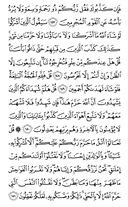 فَإِن كَذَّبُوكَ فَقُل رَّبُّكُمْ ذُو رَحْمَةٍ وَٰسِعَةٍ وَلَا يُرَدُّ
بَأْسُهُۥ عَنِ ٱلْقَوْمِ ٱلْمُجْرِمِينَ ١٤٧ سَيَقُولُ ٱلَّذِينَ
أَشْرَكُوا۟ لَوْ شَآءَ ٱللَّهُ مَآ أَشْرَكْنَا وَلَآ ءَابَآؤُنَا وَلَا حَرَّمْنَا
مِن شَىْءٍ ۚ كَذَٰلِكَ كَذَّبَ ٱلَّذِينَ مِن قَبْلِهِمْ حَتَّىٰ ذَاقُوا۟ بَأْسَنَا ۗ
قُلْ هَلْ عِندَكُم مِّنْ عِلْمٍ فَتُخْرِجُوهُ لَنَآ ۖ إِن تَتَّبِعُونَ
إِلَّا ٱلظَّنَّ وَإِنْ أَنتُمْ إِلَّا تَخْرُصُونَ ١٤٨ قُلْ فَلِلَّهِ ٱلْحُجَّةُ
ٱلْبَٰلِغَةُ ۖ فَلَوْ شَآءَ لَهَدَىٰكُمْ أَجْمَعِينَ ١٤٩ قُلْ هَلُمَّ شُهَدَآءَكُمُ
ٱلَّذِينَ يَشْهَدُونَ أَنَّ ٱللَّهَ حَرَّمَ هَٰذَا ۖ فَإِن شَهِدُوا۟ فَلَا
تَشْهَدْ مَعَهُمْ ۚ وَلَا تَتَّبِعْ أَهْوَآءَ ٱلَّذِينَ كَذَّبُوا۟ بِـَٔايَٰتِنَا
وَٱلَّذِينَ لَا يُؤْمِنُونَ بِٱلْءَاخِرَةِ وَهُم بِرَبِّهِمْ يَعْدِلُونَ ١٥٠
۞ قُلْ تَعَالَوْا۟ أَتْلُ مَا حَرَّمَ رَبُّكُمْ عَلَيْكُمْ ۖ أَلَّا تُشْرِكُوا۟
بِهِۦ شَيْـًٔا ۖ وَبِٱلْوَٰلِدَيْنِ إِحْسَٰنًا ۖ وَلَا تَقْتُلُوٓا۟ أَوْلَٰدَكُم
مِّنْ إِمْلَٰقٍ ۖ نَّحْنُ نَرْزُقُكُمْ وَإِيَّاهُمْ ۖ وَلَا تَقْرَبُوا۟ ٱلْفَوَٰحِشَ
مَا ظَهَرَ مِنْهَا وَمَا بَطَنَ ۖ وَلَا تَقْتُلُوا۟ ٱلنَّفْسَ ٱلَّتِى
حَرَّمَ ٱللَّهُ إِلَّا بِٱلْحَقِّ ۚ ذَٰلِكُمْ وَصَّىٰكُم بِهِۦ لَعَلَّكُمْ تَعْقِلُونَ ١٥١